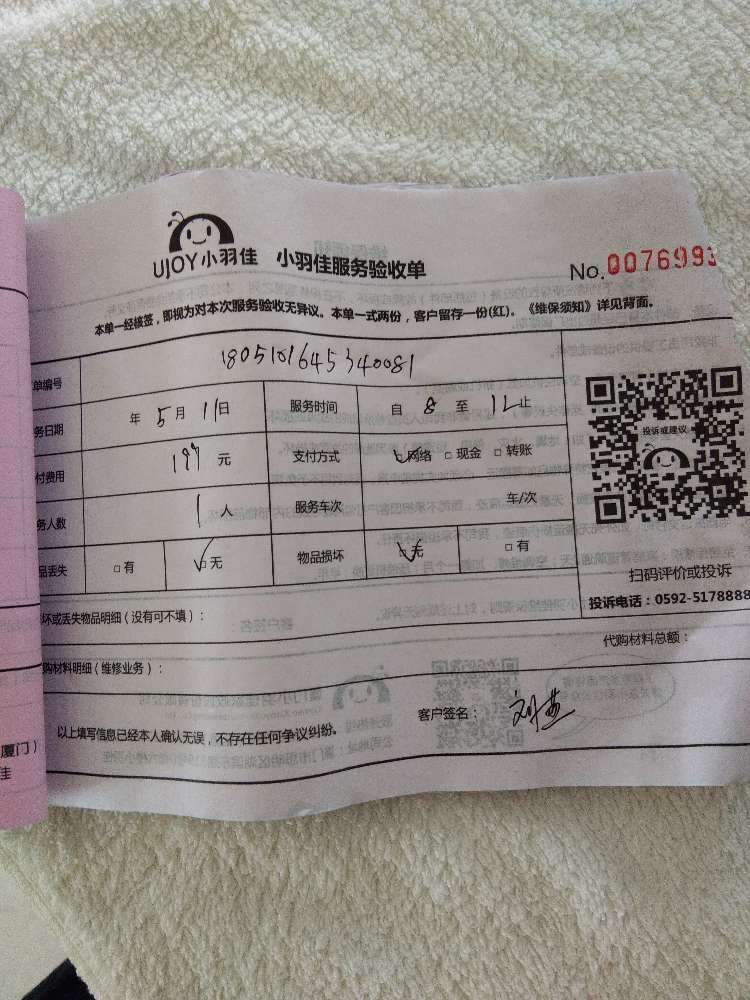 UJOY小羽佳 小羽佳服务验收单 No.0076993
本单一经核签，即视为对本次服务验收无异议。本单一式两份，客户留存一份(红)。《维保须知》详见背面。
单编号 1805101645340081
务日期 年 5 月 11 日 服务时间 自 8 至 12 止
付费用 197 元 支付方式 ☑网络 □现金 □转账
务人数 1 人 服务车次 车/次
品丢失 □有 ☑无 物品损坏 ☑无 □有
投诉或建议
扫码评价或投诉
投诉电话：0592-5178888
坏或丢失物品明细（没有可不填）：
代购材料总额：
购材料明细（维修业务）：
以上填写信息已经本人确认无误，不存在任何争议纠纷。 客户签名：
厦门）
佳